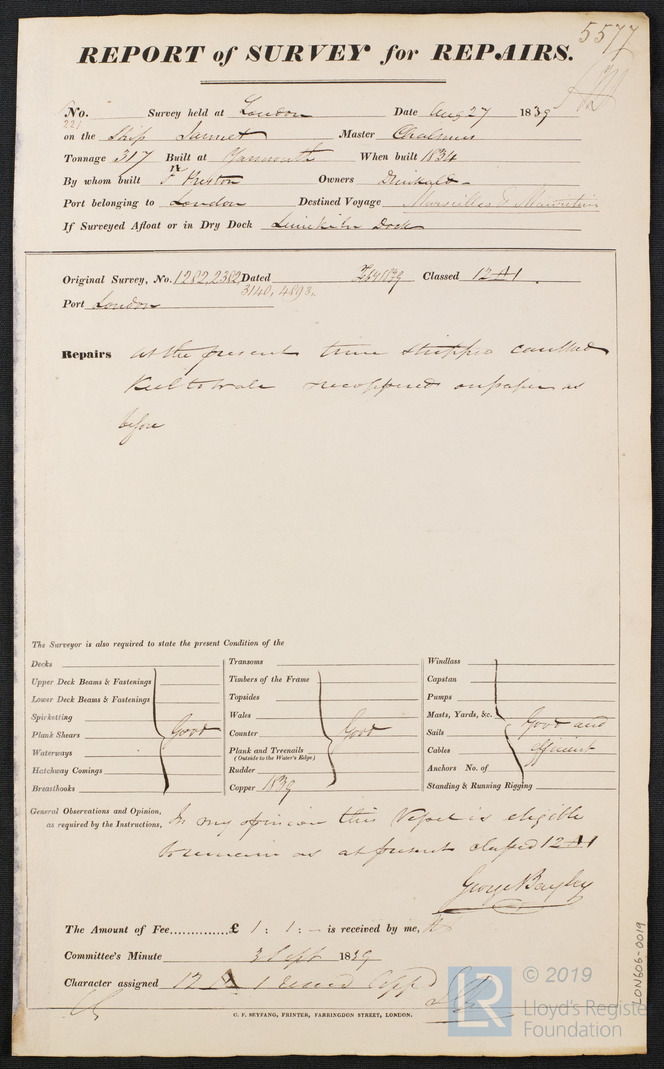 5577
REPORT of SURVEY for REPAIRS.
No. Survey held at London Date Aug 27 1839
221
on the Ship Master Chalmers
Tonnage 317 Built at Yarmouth When built 1834
By whom built Preston Owners
Port belonging to London Destined Voyage Marseilles & Mauritius
If Surveyed Afloat or in Dry Dock Limekiln Dock
Original Survey, No. 1282, 2382 Dated Feby 1839 Classed 12 A1.
3140, 4893.
Port London
Repairs at the present time stripped caulked
Keel to wale recoppered on paper as
before
The Surveyor is also required to state the present Condition of the
Decks
Upper Deck Beams & Fastenings
Lower Deck Beams & Fastenings
Spirketting
Plank Shears
Waterways
Hatchway Comings
Breasthooks
Good
Transoms
Timbers of the Frame
Topsides
Wales
Counter
Plank and Treenails
(Outside to the Water's Edge)
Rudder
Copper 1839
Good
Windlass
Capstan
Pumps
Masts, Yards, &c.
Sails
Cables
Anchors No. of
Standing & Running Rigging
Good and
efficient
General Observations and Opinion,
as required by the Instructions,
In my opinion this Vessel is eligible
to remain as at present classed 12 A1
George Bayley
The Amount of Fee..............£ 1 : 1 : – is received by me,
Committee's Minute 3 Sept 1839
Character assigned 12 A 1 Copp'd
C. F. SEYFANG, PRINTER, FARRINGDON STREET, LONDON.
LON606-0019
LR
© 2019
Lloyd's Register
Foundation